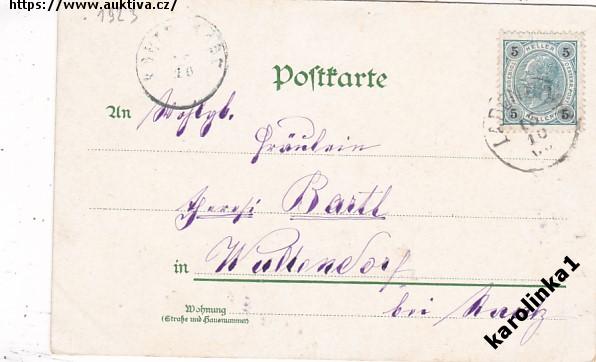 https://www.auktiva.cz/
1923
Postkarte
5 HELLER 5
5 HELLER 5
An Wohlgb.
Fräulein
Theresi Bartl
in Waltendorf
bei
Wohnung
(Straße und Hausnummer)
karolinka1